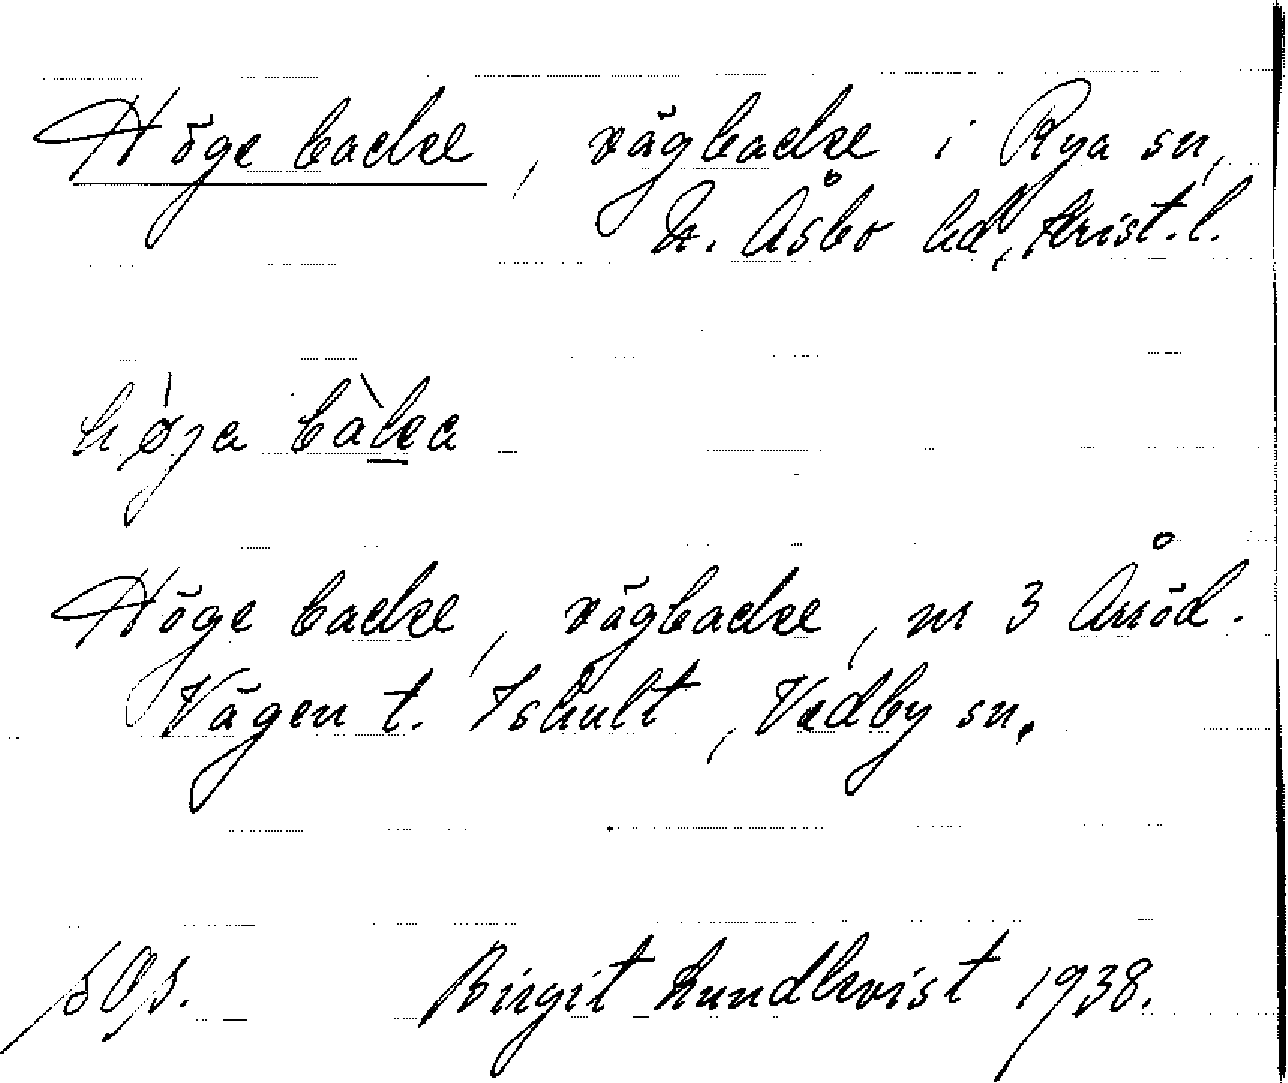 Höge backe, vägbacke i Rya sn,
N. Åsbo hd, Krist. l.
høja bàka
Höge backe, vägbacke, nr 3 Årröd.
Vägen t. Ishult, Vedby sn.
Birgit Lundkvist 1938.